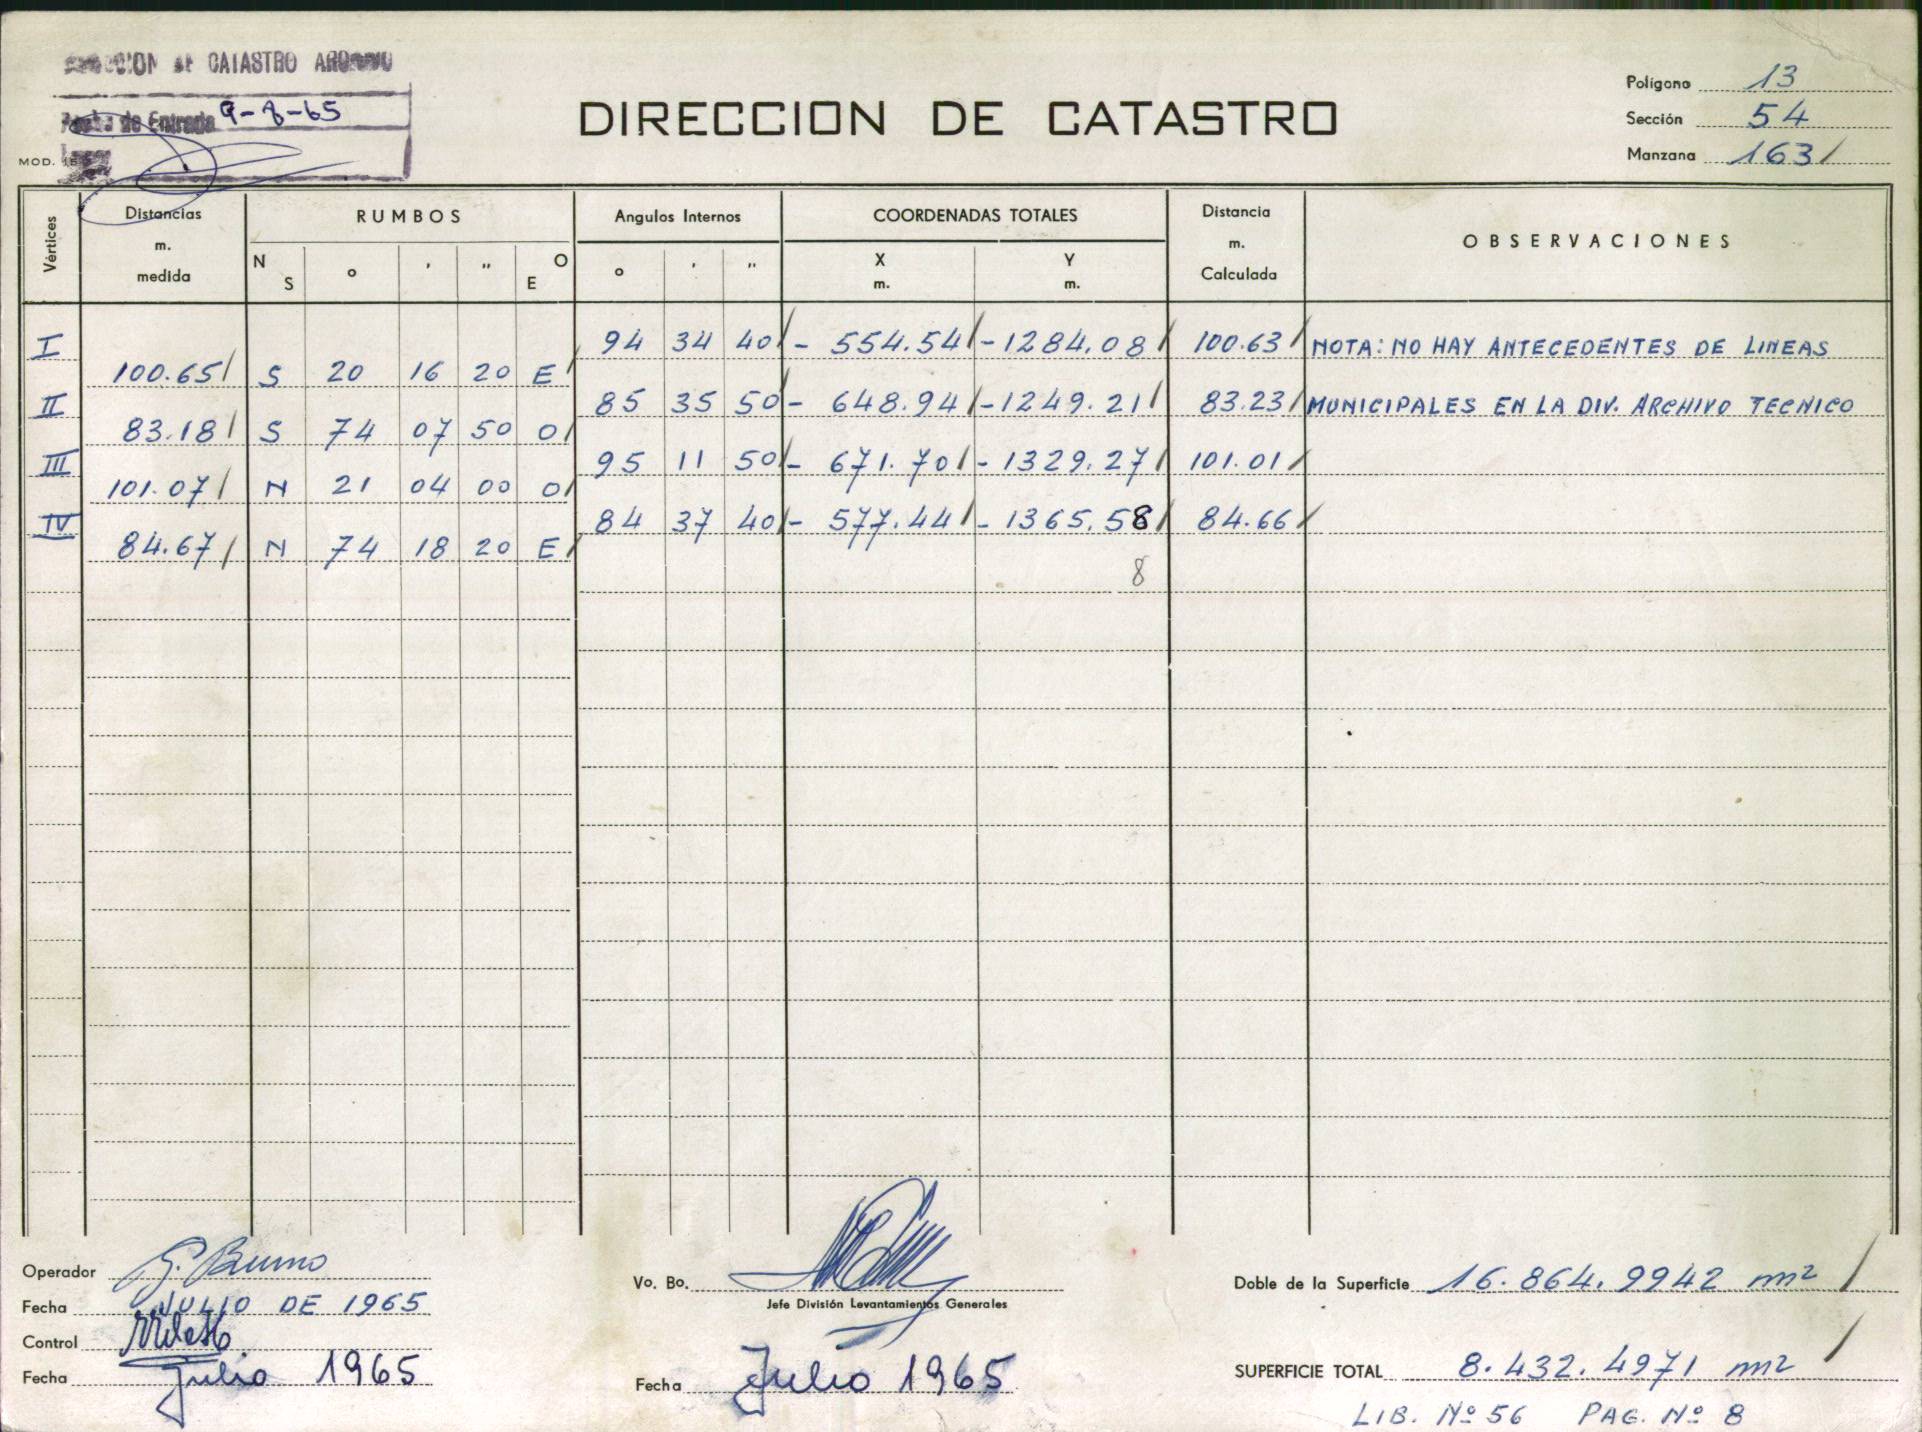 CATASTRO
de Entrada 9-8-65
MOD.
DIRECCION DE CATASTRO
Polígono 13
Sección 54
Manzana 163/
Vértices Distancias m. medida RUMBOS N S o ' " O E Angulos Internos o ' " COORDENADAS TOTALES X m. Y m. Distancia m. Calculada OBSERVACIONES
I 94 34 40/ - 554.54/ -1284.08/ 100.63/ NOTA: NO HAY ANTECEDENTES DE LINEAS
100.65/ S 20 16 20 E/
II 85 35 50/ - 648.94/ -1249.21/ 83.23/ MUNICIPALES EN LA DIV. ARCHIVO TECNICO
83.18/ S 74 07 50 O/
III 95 11 50/ - 671.70/ - 1329.27/ 101.01/
101.07/ N 21 04 00 O/
IV 84 37 40/ - 577.44/ - 1365.58/ 84.66/
84.67/ N 74 18 20 E/
8
Operador G. Bruno
Fecha JULIO DE 1965
Control
Fecha Julio 1965
Vo. Bo.
Jefe División Levantamientos Generales
Fecha Julio 1965
Doble de la Superficie 16.864.9942 m2 /
SUPERFICIE TOTAL 8.432.4971 m2 /
LIB. Nº 56 PAG. Nº 8